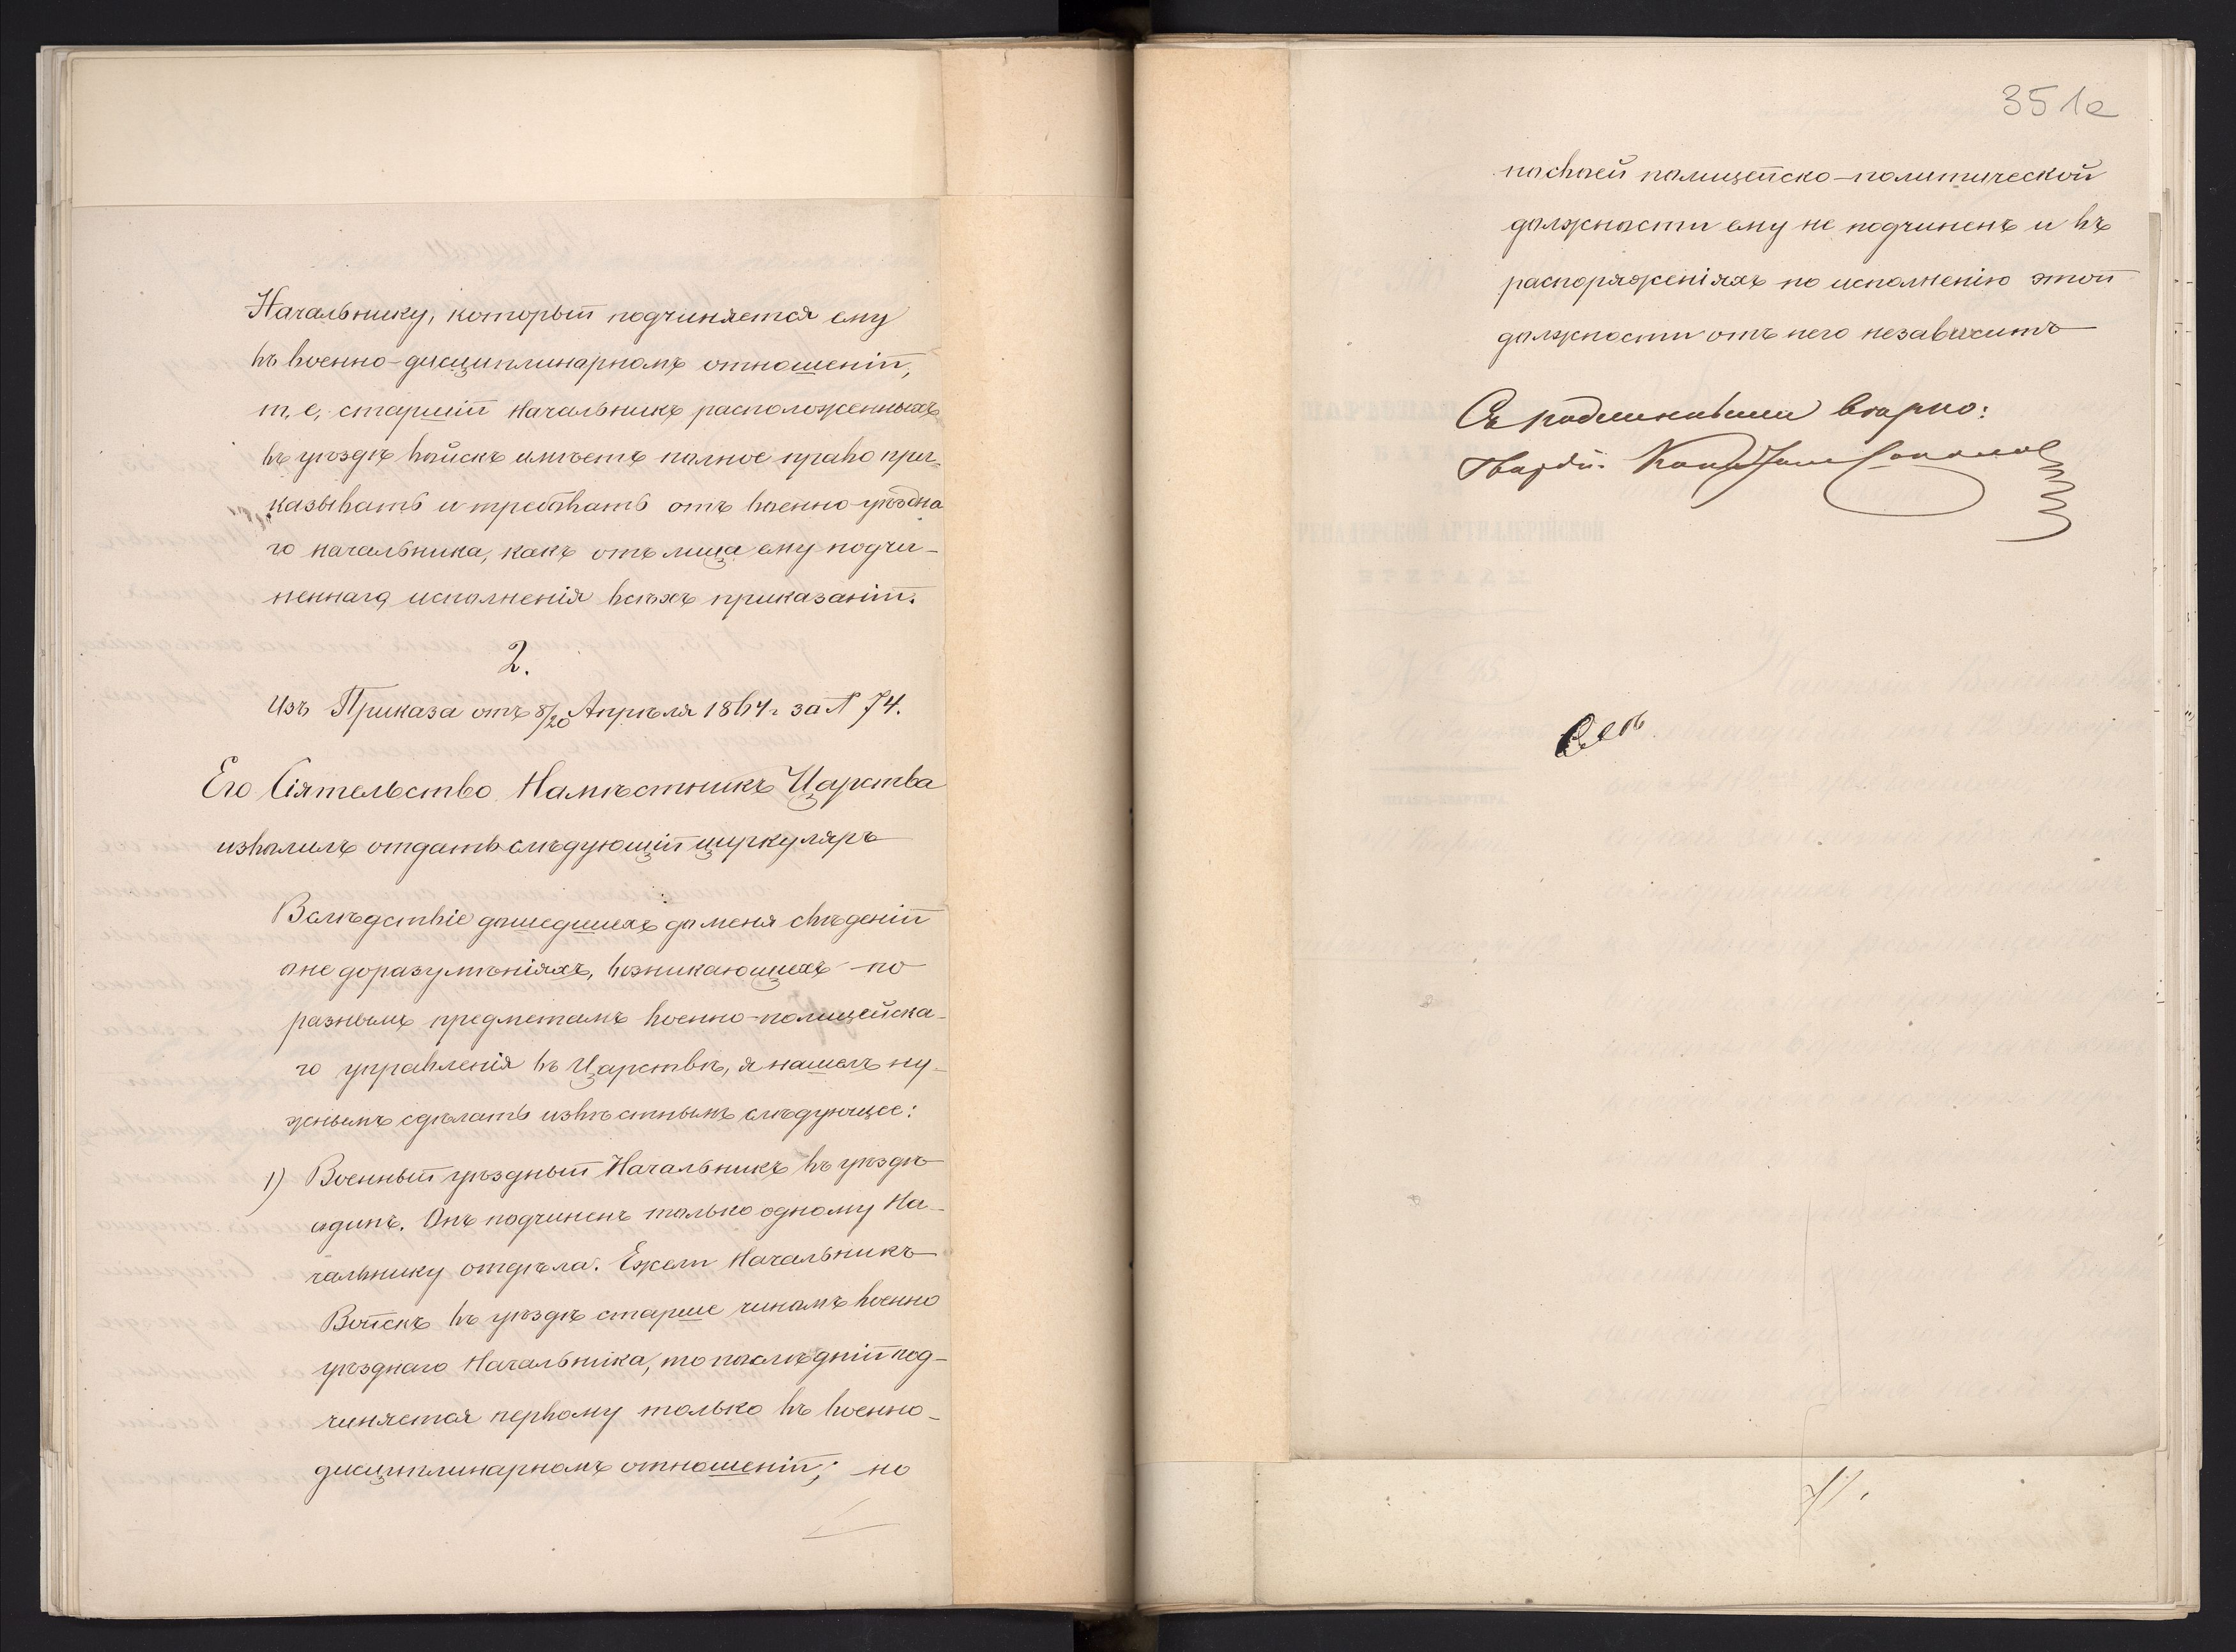 Начальнику, который подчиняется ему
въ военно-дисциплинарномъ отношеніи,
т, е, старшій начальникъ расположенныхъ
въ уѣздѣ войскъ имѣетъ полное право при-
казывать и требовать отъ военно-уѣздна
го начальника, какъ отъ лица ему подчи-
неннаго, исполненія всѣхъ приказаній.
2.
Изъ Приказа отъ 8/20 Апрѣля 1864 г. за № 74.
Его Сіятельство Намѣстникъ Царства
изволилъ отдать слѣдующій циркуляръ
Вслѣдствіе дошедшихъ до меня свѣдений
о не доразумѣніяхъ, возникающихъ по
разнымъ предметамъ военно-полицейска-
го управленія въ Царствѣ, я нашелъ ну-
жнымъ сдѣлать извѣстнымъ слѣдующее:
1) Военный уѣздный Начальникъ въ уѣздѣ
одинъ. Онъ подчиненъ только одному На-
чальнику отдѣла. Ежели Начальникъ
Войскъ въ уѣздѣ старше чиномъ военно
уѣзднаго Начальника, то послѣдній под-
чиняется первому только въ военно-
дисциплинарномъ отношеніи; но
351a
по своей полицейско-политической
должности ему не подчиненъ и въ
распоряженіяхъ по исполненію этой
должности отъ него независитъ
Съ подлиннымъ вѣрно:
Гвардіи